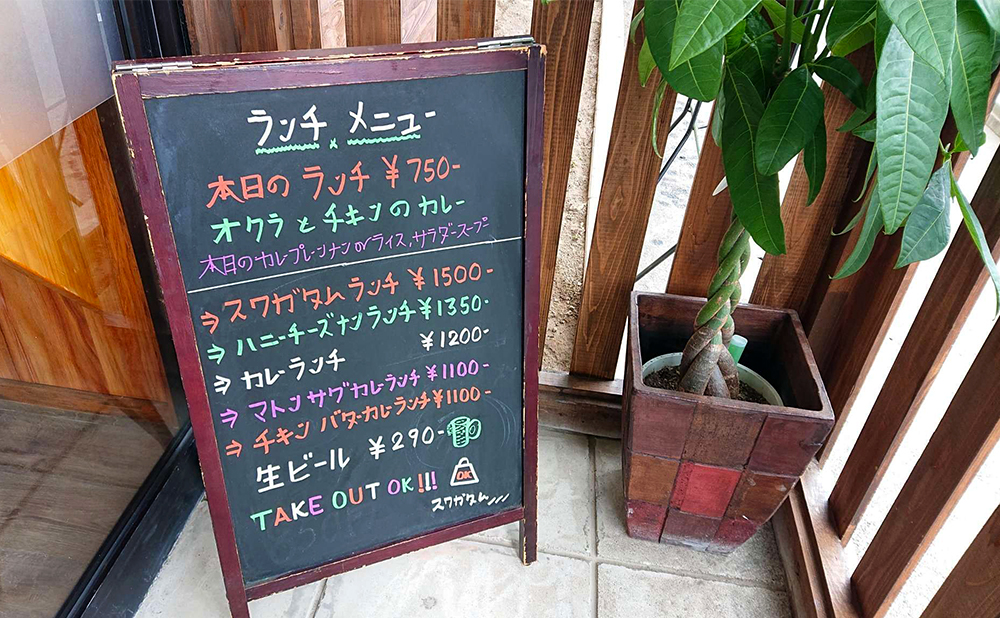 ランチ メニュー
本日の ランチ ¥750-
オクラとチキンのカレー
本日のカレープレーンナンorライス,サラダースープ
⇒スワガタムランチ ¥1500-
⇒ハニーチーズナンランチ¥1350-
⇒カレーランチ ¥1200-
⇒マトンサグカレーランチ¥1100-
⇒チキンバターカレーランチ¥1100-
生ビール ¥290-
TAKE OUT OK!!!
OK
スワガタム